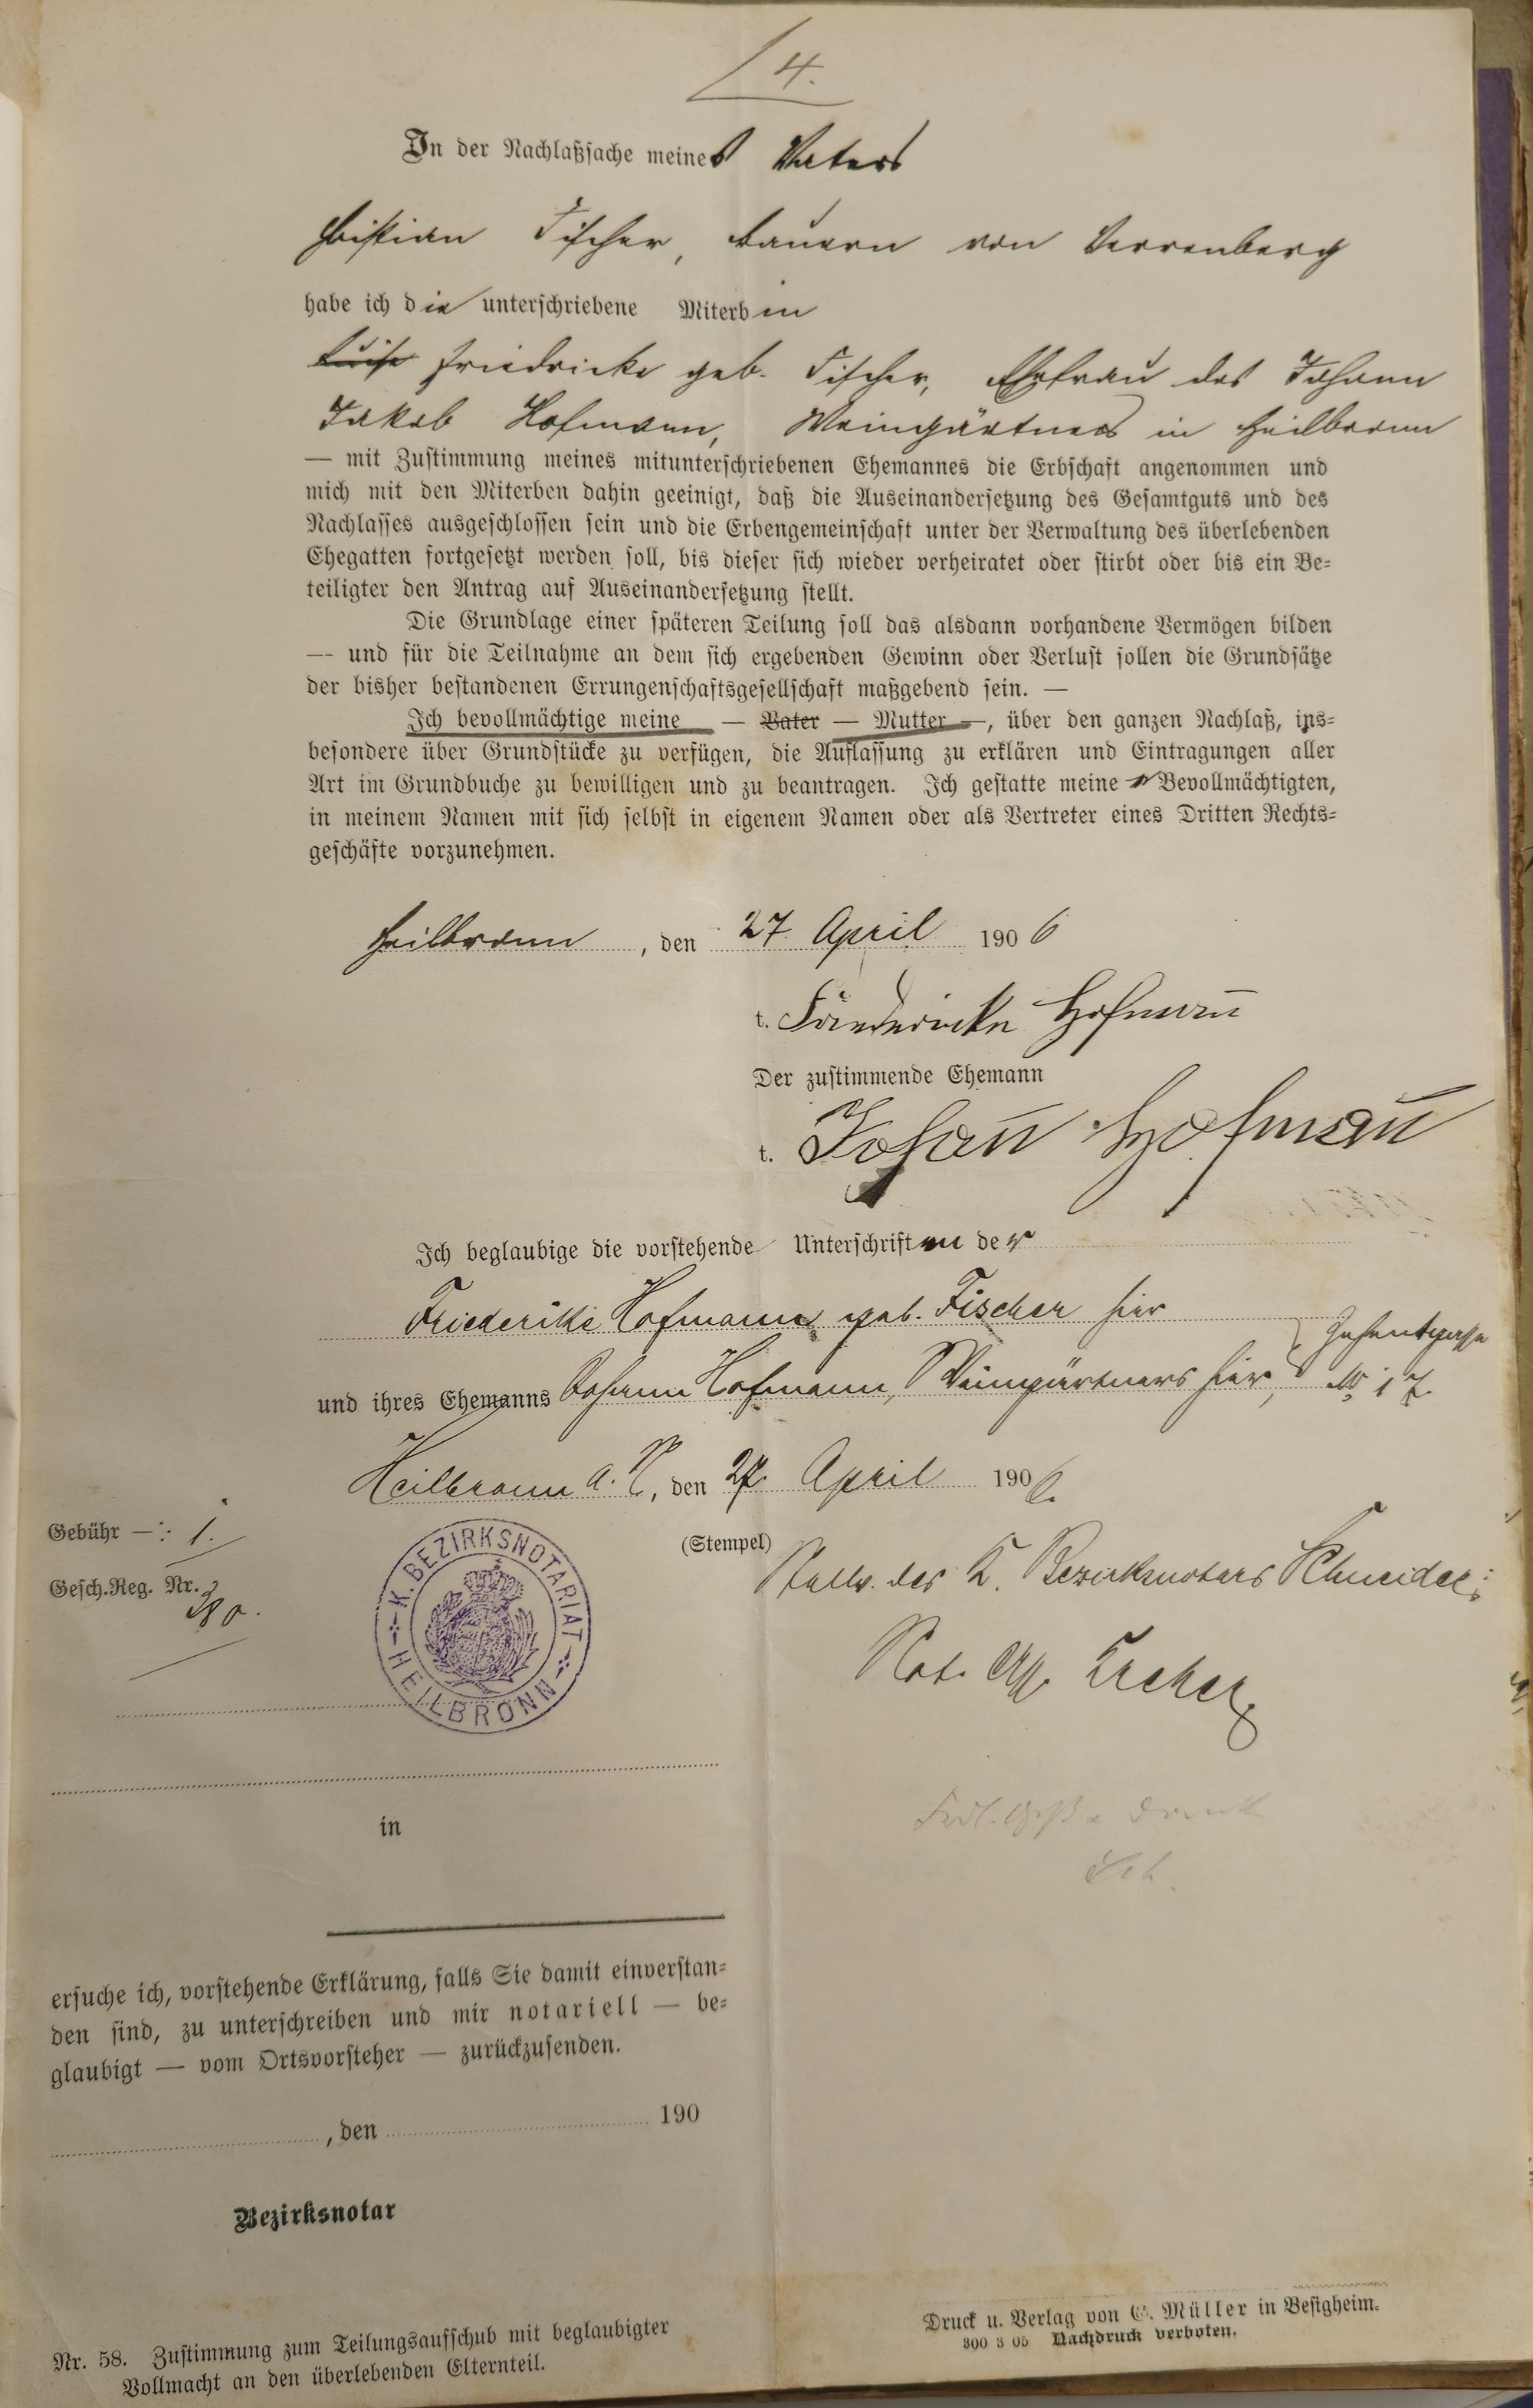 4.
In der Nachlaßsache meines Vaters
Christian Fischer, Bauern von Verrenberg
habe ich die unterschriebene Miterbin
Luise Friedricke geb. Fischer, Ehefrau des Johann
Jakob Hofmann, Weingärtners in Heilbronn
— mit Zustimmung meines mitunterschriebenen Ehemannes die Erbschaft angenommen und
mich mit den Miterben dahin geeinigt, daß die Auseinandersetzung des Gesamtguts und des
Nachlasses ausgeschlossen sein und die Erbengemeinschaft unter der Verwaltung des überlebenden
Ehegatten fortgesetzt werden soll, bis dieser sich wieder verheiratet oder stirbt oder bis ein Be-
teiligter den Antrag auf Auseinandersetzung stellt.
Die Grundlage einer späteren Teilung soll das alsdann vorhandene Vermögen bilden
— und für die Teilnahme an dem sich ergebenden Gewinn oder Verlust sollen die Grundsätze
der bisher bestandenen Errungenschaftsgesellschaft maßgebend sein. —
Ich bevollmächtige meine — Vater — Mutter —, über den ganzen Nachlaß, ins-
besondere über Grundstücke zu verfügen, die Auflassung zu erklären und Eintragungen aller
Art im Grundbuche zu bewilligen und zu beantragen. Ich gestatte meiner Bevollmächtigten,
in meinem Namen mit sich selbst in eigenem Namen oder als Vertreter eines Dritten Rechts-
geschäfte vorzunehmen.
Heilbronn, den 27. April 1906
t. Friedericke Hofmann
Der zustimmende Ehemann
t. Johann Hofmann
Ich beglaubige die vorstehende Unterschriften der
Friederike Hofmann geb. Fischer hier
und ihres Ehemanns Johann Hofmann, Weingärtners hier, Zehentgasse
No 17.
Heilbronn a. N., den 27. April 1906.
Gebühr —: 1.
(Stempel)
Gesch.Reg. Nr.
380.
K. BEZIRKSNOTARIAT
HEILBRONN
Stellv. des K. Bezirksnotars Schneider:
Not. Ass.
in
ersuche ich, vorstehende Erklärung, falls Sie damit einverstan-
den sind, zu unterschreiben und mir notariell — be-
glaubigt — vom Ortsvorsteher — zurückzusenden.
, den 190
Bezirksnotar
Nr. 58. Zustimmung zum Teilungsaufschub mit beglaubigter
Vollmacht an den überlebenden Elternteil.
Druck u. Verlag von G. Müller in Besigheim.
300 3 05 Nachdruck verboten.